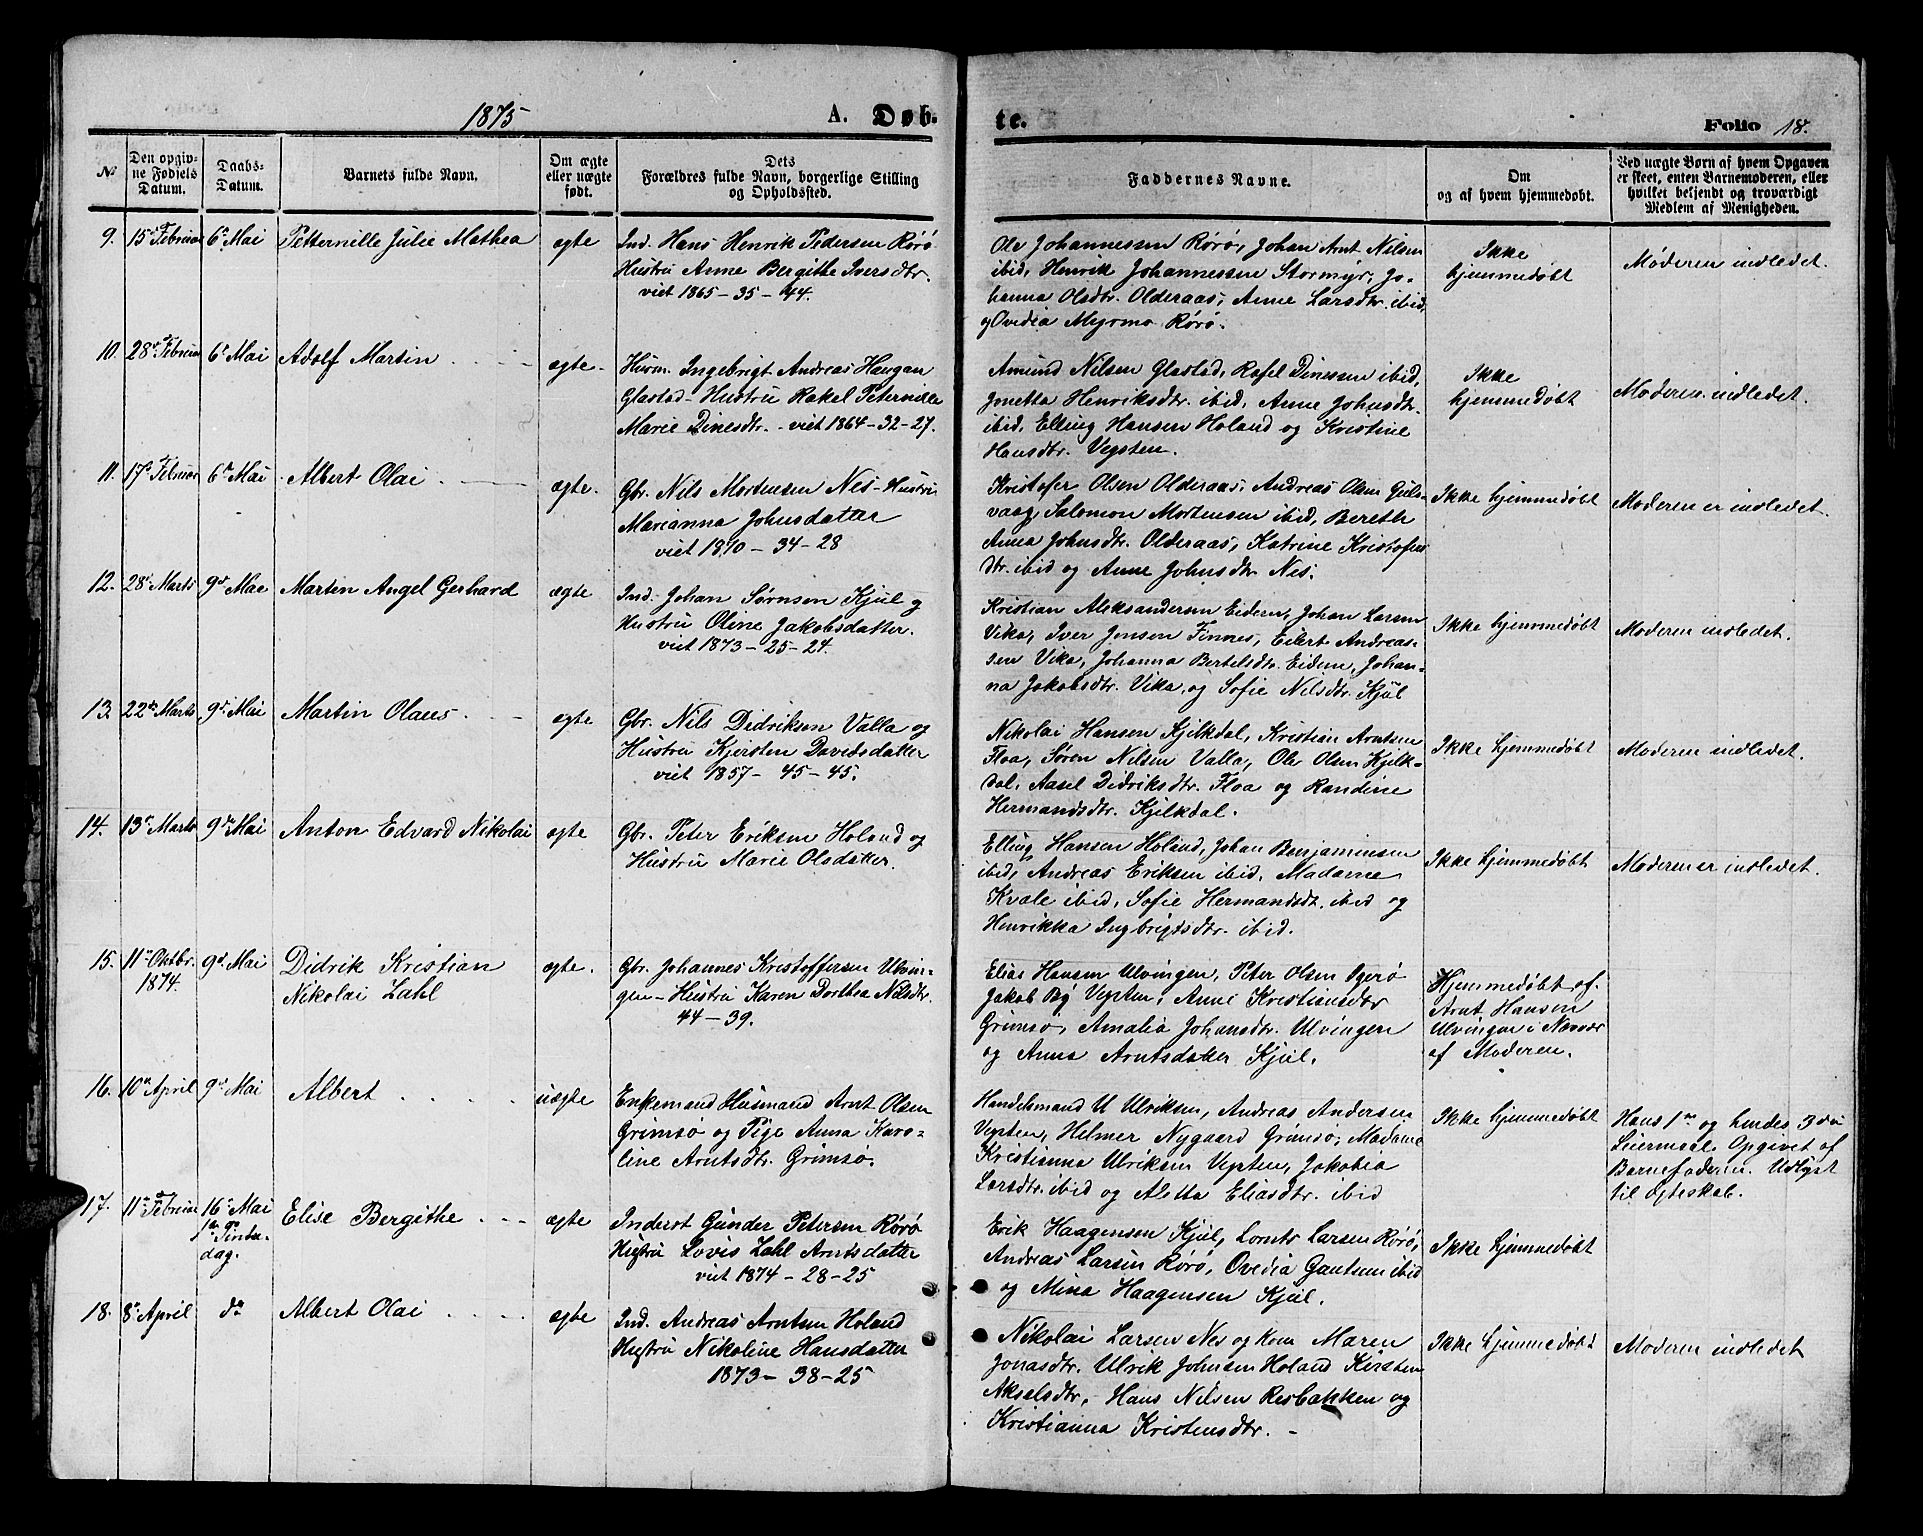 1875
A. Døb-
te.
Folio 18.
№
Den opgiv-
ne Fødsels
Datum.
Daabs-
Datum.
Barnets fulde Navn.
Om ægte
eller uægte
født.
Dets
Forældres fulde Navn, borgerlige Stilling
og Opholdssted.
Faddernes Navne.
Om
og af hvem hjemmedøbt.
Ved uægte Børn af hvem Opgaven
er skeet, enten Barnemoderen, eller
hvilket bekjendt og troværdigt
Medlem af Menigheden.
9. 15de Februar 6te Mai Petternille Julie Mathea ægte
Ind. Hans Henrik Pedersen Rørø
Hustru Anne Bergithe Iversdtr.
viet 1865 - 35 - 44.
Ole Johannessen Rørø, Johan Arnt Nilsen
ibid, Henrik Johannessen Stormyr, Jo-
hanna Olsdtr. Olderaas, Anne Larsdtr. ibid,
og Ovedia Myrmo Rørø.
Ikke
hjemmedøbt
Moderen indledet.
10. 28de Februar 6te Mai Adolf Martin ægte.
Husm. Ingebrigt Andreas Haugan
Glastad - Hustru Rakel Peternille
Marie Dinesdtr. - viet 1864 - 32 - 27.
Amund Nilsen Glastad, Rafel Dinessen ibid,
Jonetta Henriksdtr. ibid, Anne Johnsdtr.
ibid, Elling Hansen Holand og Kristine
Hansdtr. Vegsten.
Ikke
hjemmedøbt
Moderen indledet.
11. 17de Februar 6te Mai Albert Olai ægte.
Gbr. Nils Mortensen Nes - Hustru
Marianna Johnsdatter
viet 1870 - 34 - 28
Kristofer Olsen Olderaas, Andreas Olsen Guls-
vaag, Salomon Mortensen ibid, Bereth
Anna Johnsdtr. Olderaas, Katrine Kristofers
dtr. ibid og Anne Johnsdtr Nes.
Ikke hjemmedøbt
Moderen er indledet.
12. 28de Marts 9de Mai Martin Angel Gerhard ægte
Ind. Johan Sørnsen Kjul og
Hustru Oline Jakobsdatter.
viet 1873 - 25 - 24.
Kristian Aleksandersen Eidem, Johan Larsen
Vika, Iver Jonsen Finnes, Eilert Andreas-
sen Vika, Johanna Bertelsdtr. Eidem, Johan-
na Jakobsdtr. Vika, og Sofie Nilsdtr. Kjul
Ikke hjemmedøbt
Moderen indledet.
13. 22de Marts 9de Mai Martin Olaus ægte
Gbr. Nils Didriksen Valla og
Hustru Kjersten Davidsdatter
viet 1857 - 45 - 45.
Nikolai Hansen Kjilkdal, Kristian Arntsen
Floa, Søren Nilsen Valla, Ole Olsen Kjilk-
dal, Aasel Didriksdtr. Floa og Randine
Hermandsdtr. Kjilkdal.
Ikke hjemmedøbt
Moderen indledet.
14. 13de Marts 9de Mai Anton Edvard Nikolai ægte
Gbr. Peter Eriksen Holand og
Hustru Marie Olsdatter.
Elling Hansen Holand, Johan Benjaminsen
ibid, Andreas Eriksen ibid, Madame
Kvale ibid, Sofie Hermandsdt. ibid og
Henrikka Ingbrigtsdtr. ibid.
Ikke hjemmedøbt
Moderen er indledet.
15. 11te Oktbr. 9de Mai Didrik Kristian ægte.
1874. Nikolai Zahl
Gbr. Johannes Kristoffersen Ulvin-
gen - Hustru Karen Dorthea Nilsdtr.
44 - 39.
Elias Hansen Ulvingen, Peter Olsen Ygerø
Jakob By Vegsten, Anne Kristiansdtr
Grimsø, Amalia Johansdtr. Ulvingen
og Anna Arntsdatter Kjul.
Hjemmedøbt af
Arnt Hansen
Ulvingen i Nærvær
af Moderen.
16. 10de April 9de Mai Albert uægte
Enkemand Husmand Arnt Olsen
Grimsø og Pige Anna Karo-
line Arntsdtr. Grimsø.
Handelsmand U Ulriksen, Andreas Andersen
Vegsten, Helmer Nygaard Grimsø, Madame
Kristianna Ulriksen Vegsten, Jakobia
Larsdtr. ibid og Aletta Eliasdtr. ibid
Ikke hjemmedøbt
Hans 1ste og hendes 3die
Leiermaal. Opgivet af
Barnefaderen. Udlyst
til Ægteskab.
17. 11te Februar 16de Mai Elise Bergithe ægte
1ste Pintse-
dag.
Inderst Gunder Petersen Rørø
Hustru Lovis Zahl Arntsdatter
viet 1874 - 28 - 25
Erik Haagensen Kjul, Lornts Larsen Rørø,
Andreas Larsen Rørø, Ovedia Gautsen ibid
og Mina Haagensen Kjul.
Ikke hjemmedøbt
18. 8de April do Albert Olai ægte
Ind. Andreas Arntsen Holand
Hustru Nikoline Hansdatter
1873 - 38 - 25
Nikolai Larsen Nes og Kone Maren
Jonasdtr. Ulrik Johnsen Holand Kirsten
Akselsdtr, Hans Nilsen Resbakken og
Kristianna Kristensdtr. -
Ikke hjemmedøbt
Moderen indledet